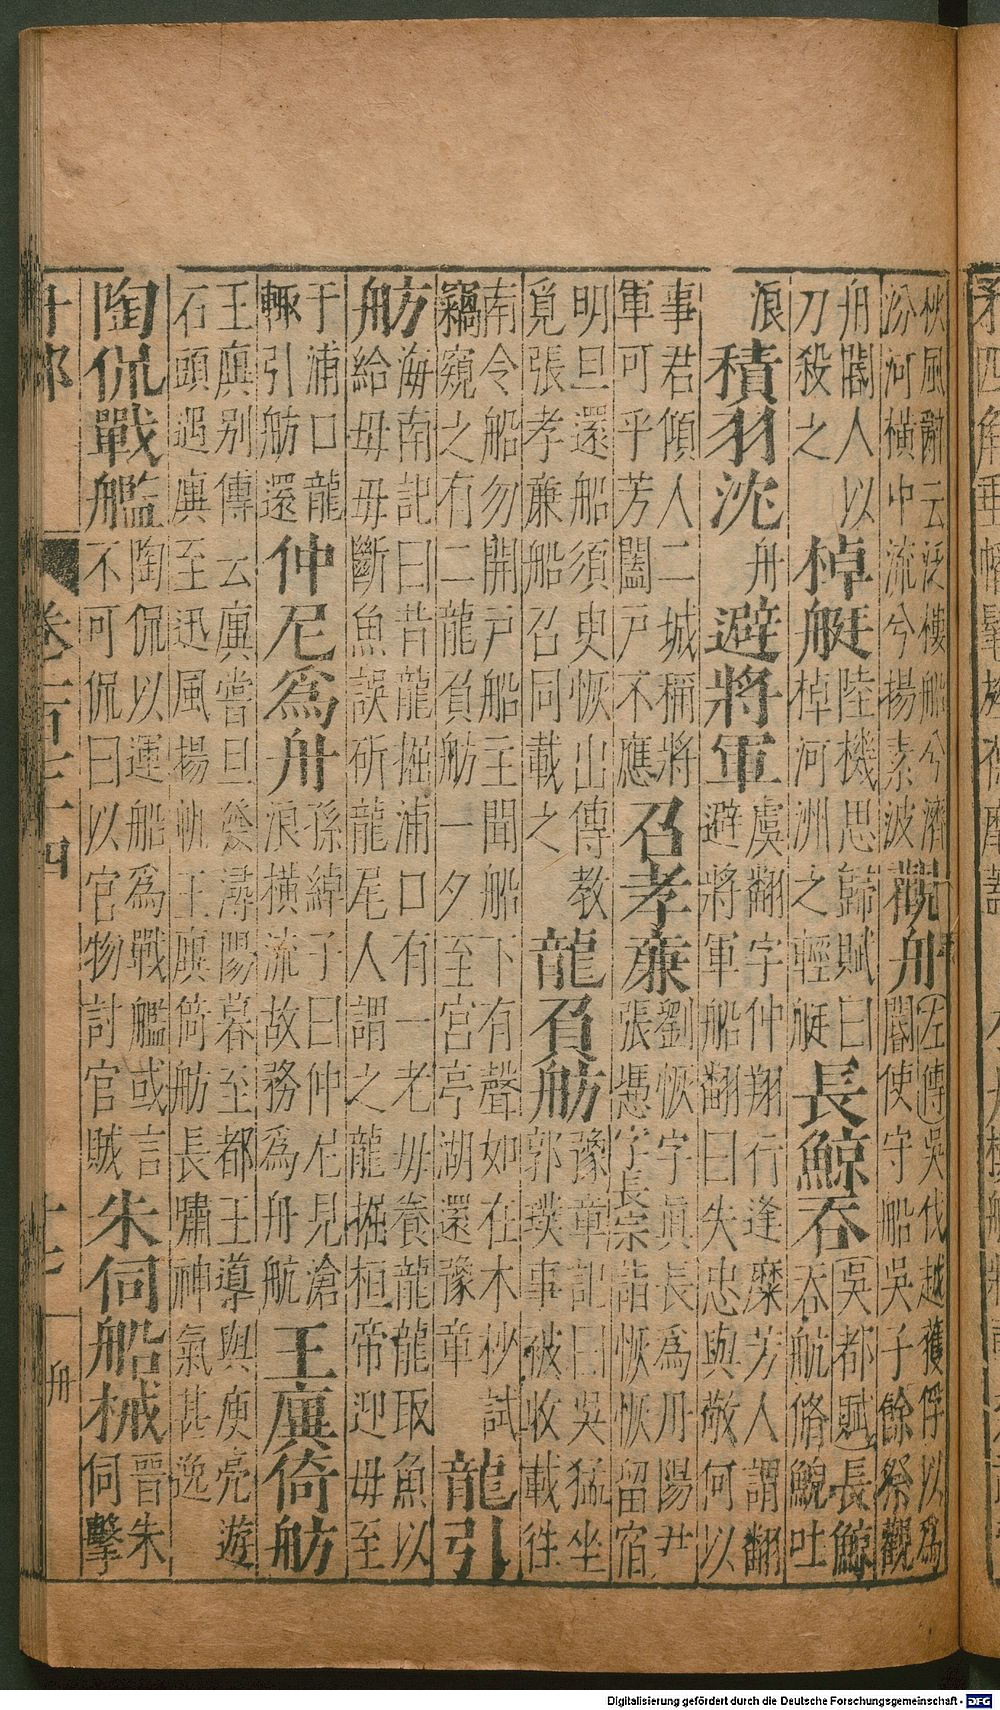 秋風辭云泛樓船兮濟
汾河橫中流兮揚素波
觀舟
左傳吳伐越獲俘以爲
閽使守船吳子餘祭觀
舟閽人以
刀殺之
棹艇
陸機思歸賦曰
棹河洲之輕艇
長鯨吞
吳都賦長鯨
吞航脩鯢吐
浪
積羽沈
舟
避將軍
虞翻字仲翔行逢糜芳人謂翻
避將軍船翻曰失忠與敬何以
事君傾人二城稱將
軍可乎芳闔戸不應
召孝廉
劉恢字眞長爲丹陽尹
張慿字長宗詣恢恢留宿
明旦還船須史恢山傳教
覓張孝廉船召同載之
龍負舫
豫章記曰吳猛坐
郭璞事被收載往
南令船勿開戸船主聞船下有聲如在木杪試
竊窺之有二龍負舫一夕至宮亭湖還豫章
龍引
舫
海南記曰昔龍掘浦口有一老毋養龍龍取魚以
給毋毋斷魚誤斫龍尾人謂之龍掘桓帝迎毋至
于浦口龍
輒引舫還
仲尼爲舟
孫綽子曰仲尼見滄
浪橫流故務爲舟航
王廙倚舫
王廙别傳云廙嘗旦發潯陽暮至都王導與庾亮遊
石頭遇廙至迅風揚帆王廙倚舫長嘯神氣甚逸
陶侃戰艦
陶侃以運船爲戰艦或言
不可侃曰以官物討官賊
朱伺船械
晉朱
伺擊
舟部 卷一百三十四 十七 舟
Digitalisierung gefördert durch die Deutsche Forschungsgemeinschaft - DFG